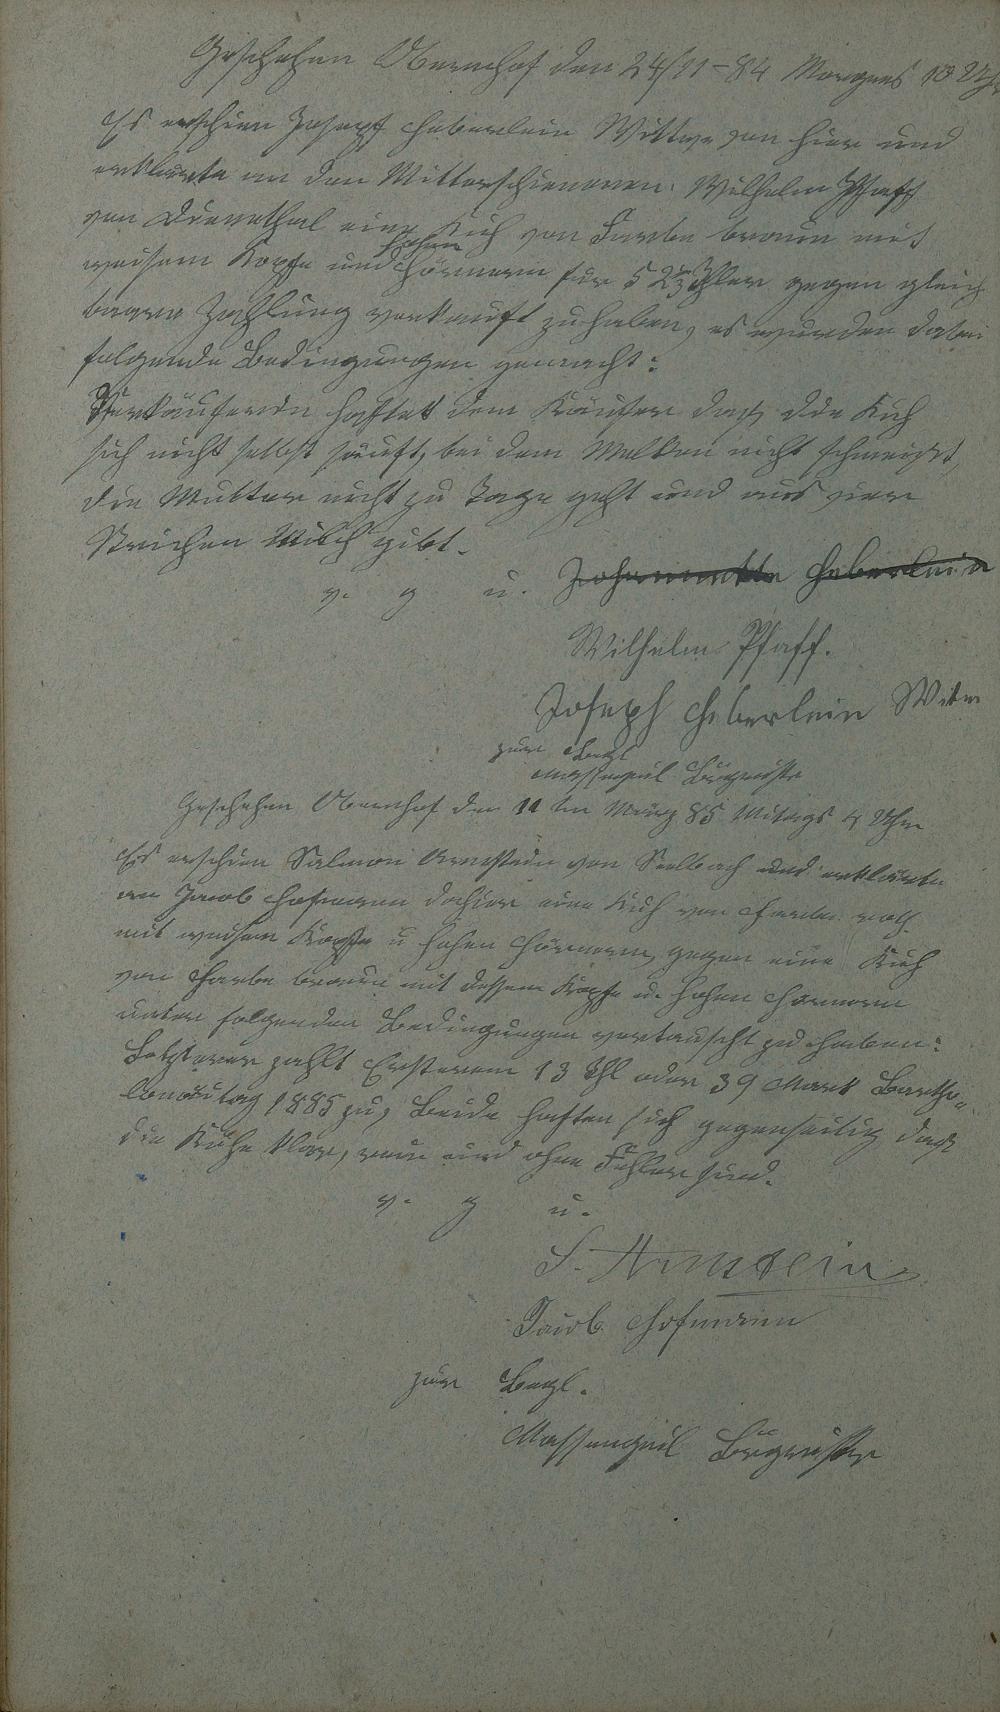 Geschehen Obernhof den 24/11-84 Morgens 10 Uhr
Es erschien Joseph Heberlein Wittwe von hier und
erklärte an den Mitterschienenen Wilhelm Pfaff
von Dienethal eine Kuh von Farbe braun mit
weisem Kopfe und hohen Hörnern für 52 Thler gegen gleich
baare Zahlung verkauft zu haben, es wurden dabei
folgende Bedingungen gemacht:
Verkäuferin haftet dem Käufer daß die Kuh
sich nicht selbst säuft, bei dem Melken nicht schmeißt,
die Mutter nicht zu Tage geht und aus vier
Strichen Milch gibt.
v. g u. Johannette Heberlein
Wilhelm Pfaff.
Joseph Heberlein Witw
zur Begl
Massengeil Bürgmstr
Geschehen Obernhof den 11 ten März 85 Mitags 4 Uhr
Es erschien Salmon Arnstein von Seelbach und erklärte
an Jacob Hofmann dahier eine Kuh von Farbe roth
mit weisem Kopfe u hohen Hörnern, gegen eine Kuh
von Farbe braun mit Kopfe u. hohen Hörnern
unter folgenden Bedingungen vertauscht zu haben:
Letzterer zahlt Ersterem 13 Thl oder 39 Mark Bartho-
lomäitag 1885 zu, Beide haften sich gegenseitig daß
die Kühe klar, rein und ohne Fehler sind.
v. g u.
S. Arnstein
Jacob Hofmann
zur Begl.
Massengeil Bürgmstr